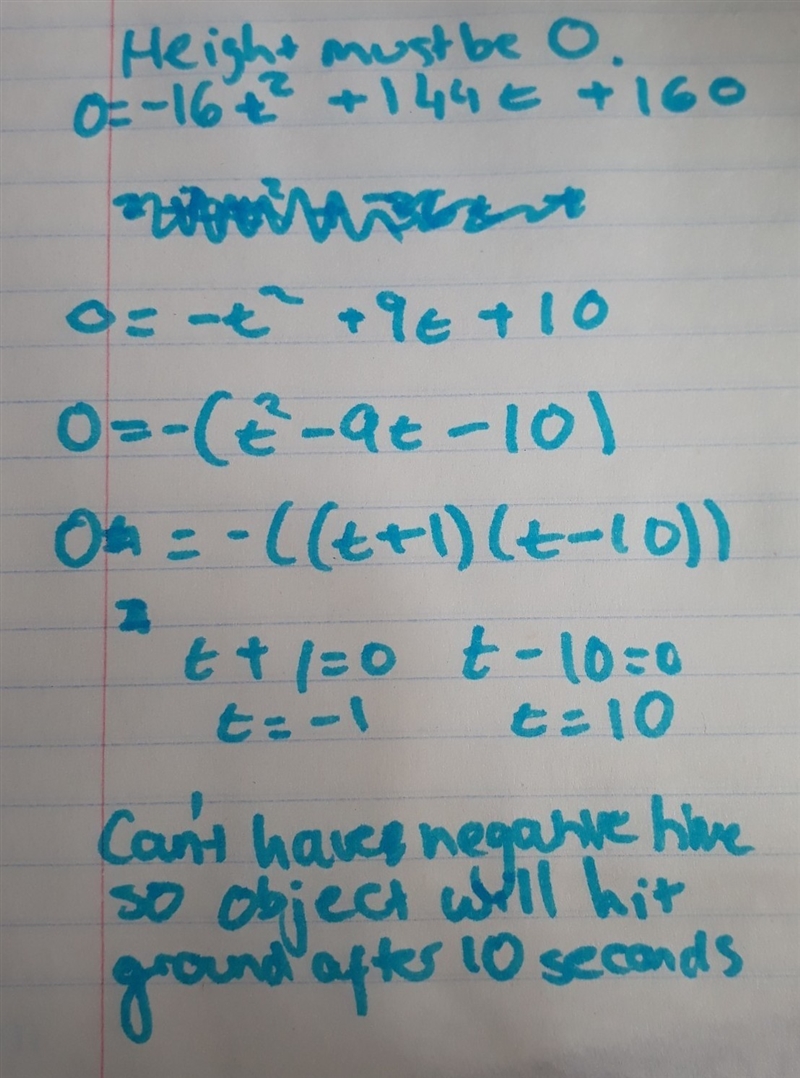 Height must be 0.
0=-16t² +144t +160
0= -t² +9t +10
0=-(t²-9t-10)
0 = -((t+1)(t-10))
t+1=0 t-10=0
t=-1 t=10
Can't have negative time
so object will hit
ground after 10 seconds